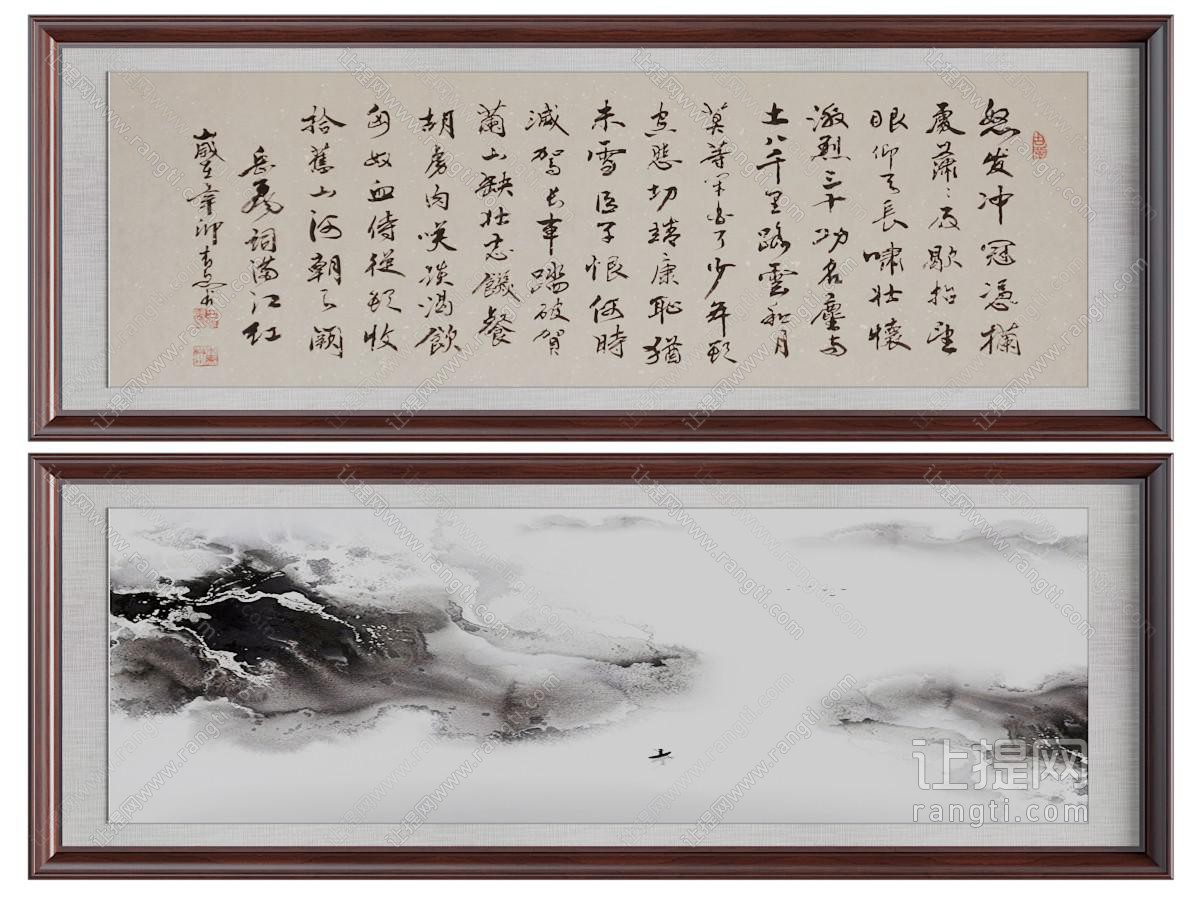 怒发冲冠憑欄
處蕭〻雨歇抬望
眼仰天長嘯壮懷
激烈三十功名塵与
土八千里路雲和月
莫等闲白了少年頭
空悲切靖康恥猶
未雪臣子恨何時
滅駕長車踏破賀
蘭山缺壮志饑餐
胡虜肉笑談渴飲
匈奴血待從頭收
拾舊山河朝天闕
岳飛詞滿江紅
歲在辛卯
让提网www.rangti.com
让提网
rangti.com